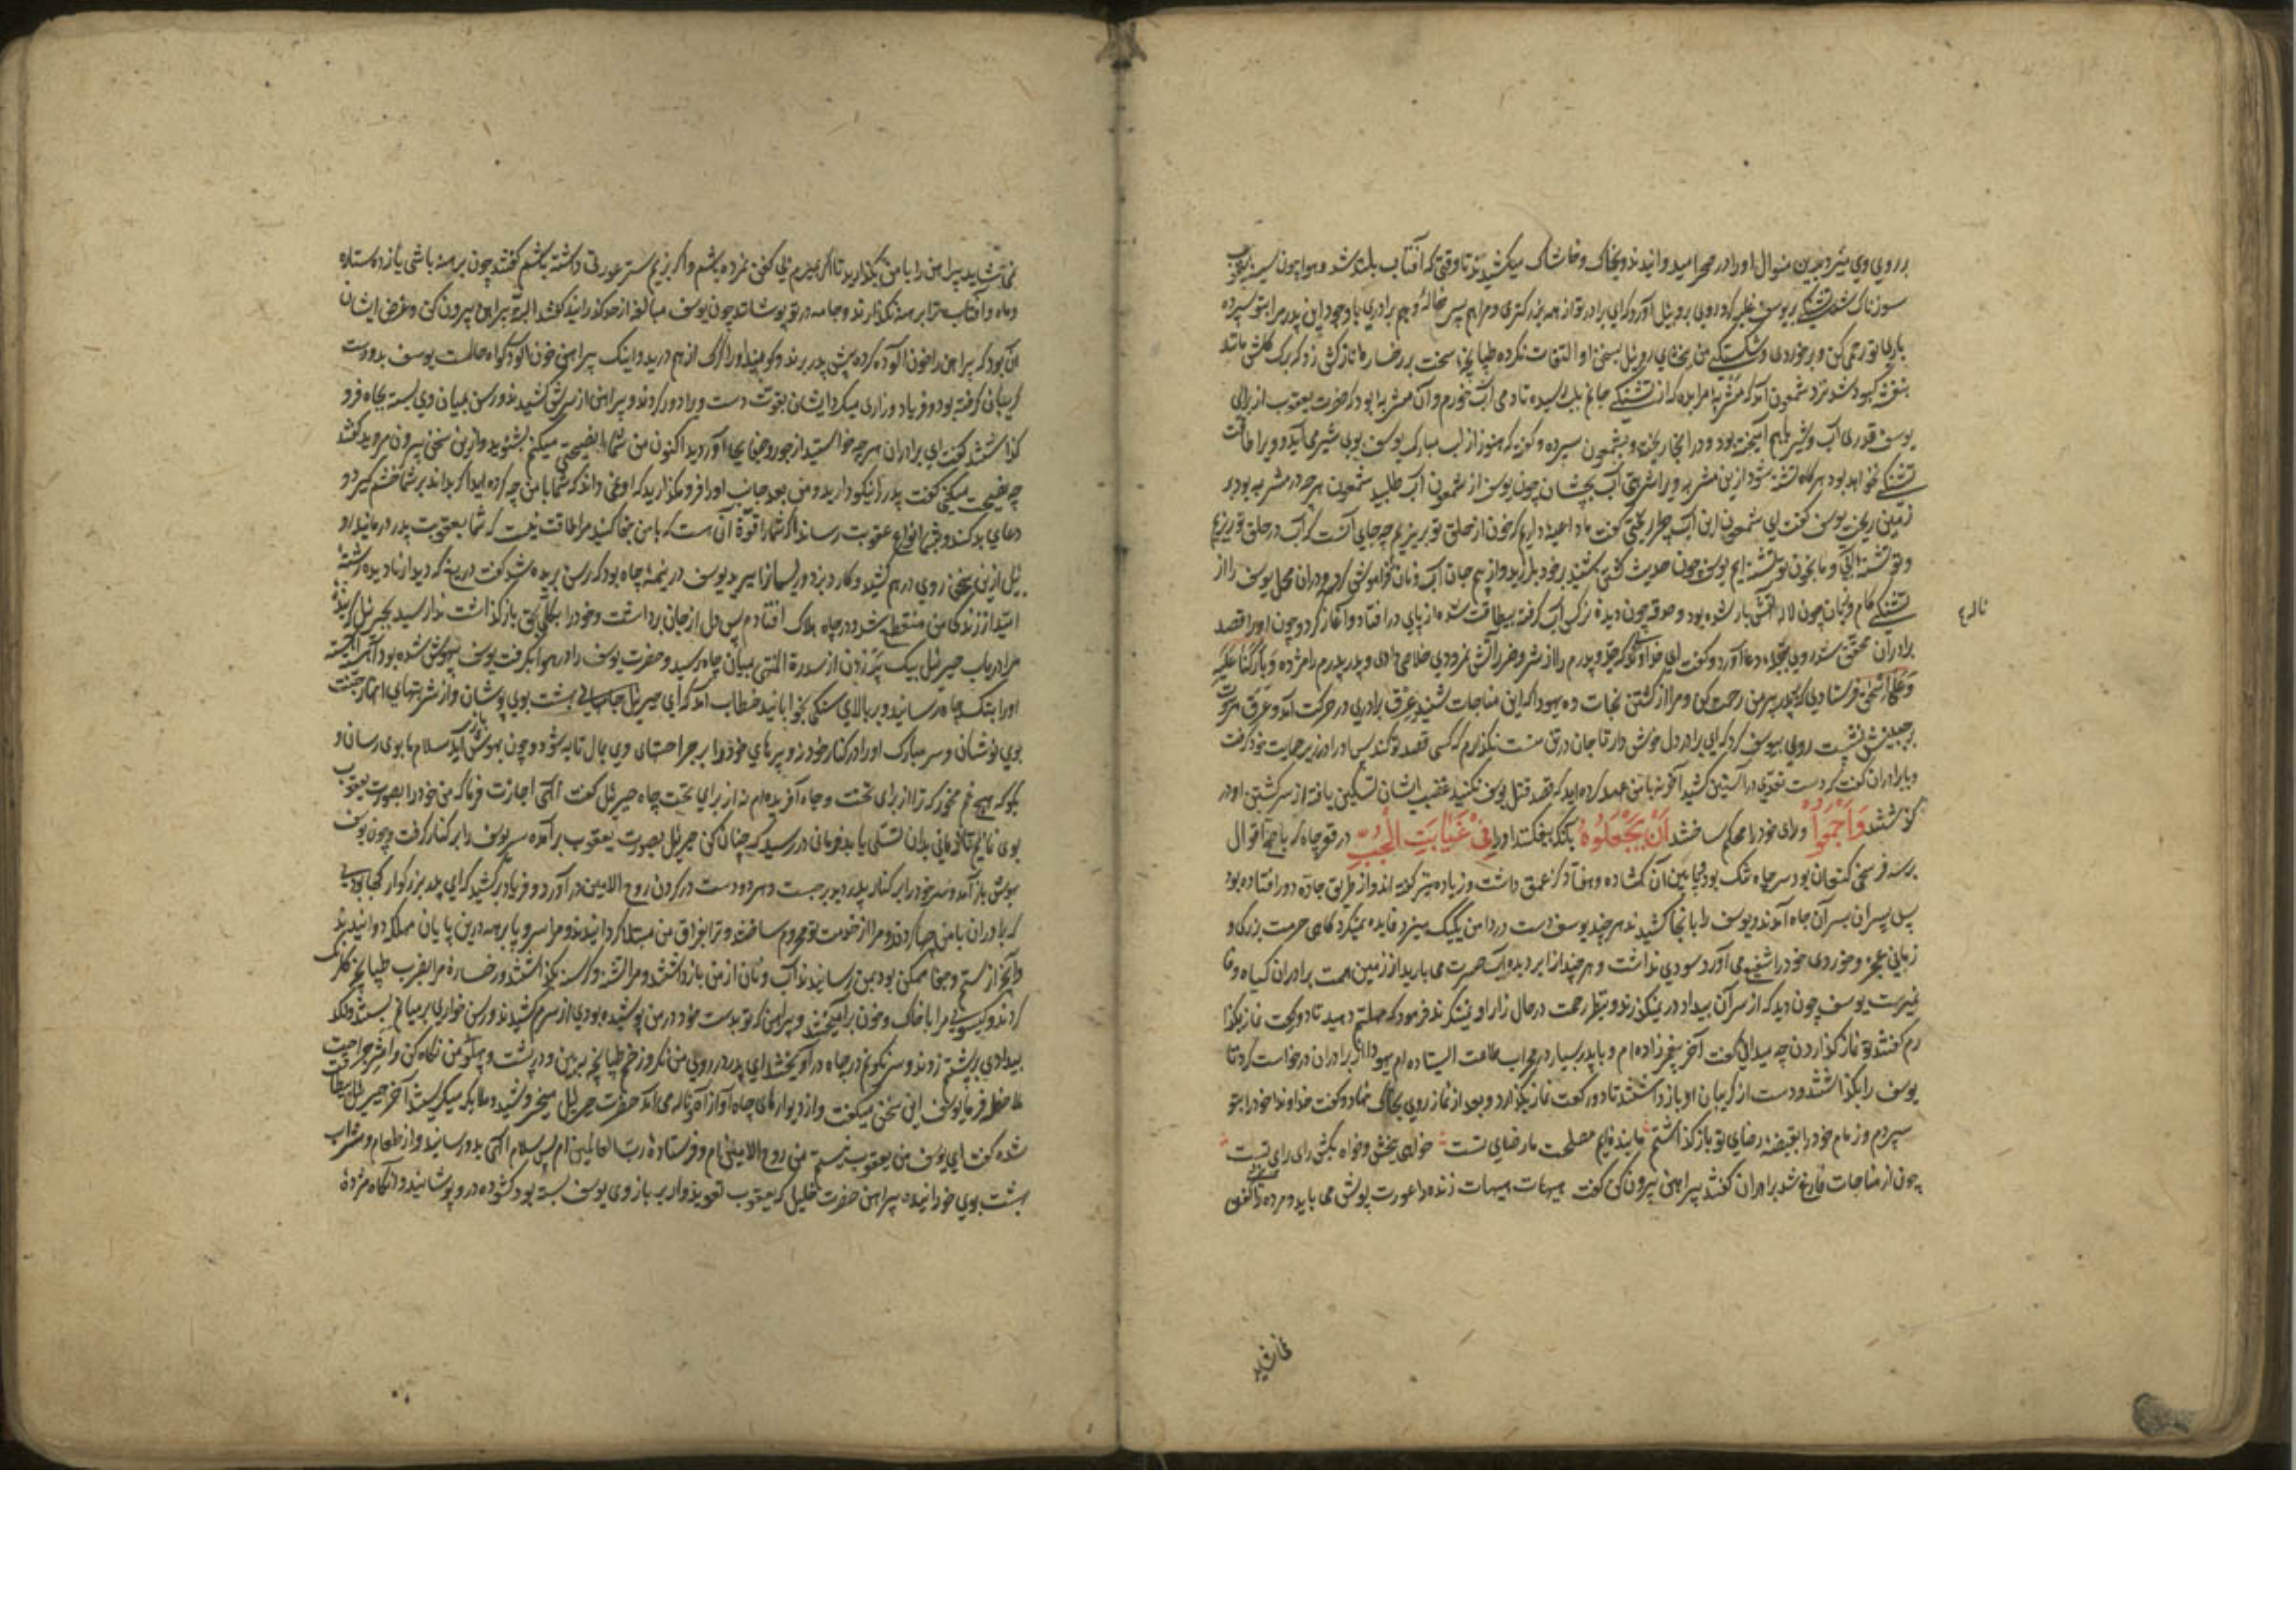 بر روی وی میزد بدین منوال او را در صحرا میدوانیدند و بخاک و خاشاک میکشیدند تا وقتی که آفتاب بلند شد و هوا چون سینهٔ یعقوب
سوزناک شد تشنگی بر یوسف غلبه کرد روی بروبیل آورد که ای برادر تو از همه بزرگتری و مرا هم پسر خالهٔ و هم برادری با وجود این پدر مرا بتو سپرده
باری تو رحمی کن و بر خوردی و شکستگی من ببخشای روبیل بسخن او التفات نکرده طپانچهٔ سخت بر رخسارهٔ نازکش زد که برک کلش مانند
بنفشه کبود شد نزد شمعون آمد که مشربه مرا بده که از تشنگی جانم بلب رسیده تا دمی آب خورم و آن مشربه بود که حضرت یعقوب از برای
یوسف قدری آب و شیر بهم آمیخته بود و در انجا ریخته و بشمعون سپرده و کفته که هنوز از لب مبارک یوسف بوی شیر می آید و ویرا طاقت
تشنگی نخواهد بود هر کاه تشنه شود ازین مشربه ویرا شربتی آب بچشان چون یوسف از شمعون آب طلبید شمعون هر چه در مشربه بود بر
زمین ریخت یوسف کفت ای شمعون این آب چرا ریختی کفت ما داعیه داریم که خون از حلق تو بریزیم چه جای آنست که آب در حلق تو ریزیم
و تو تشنه آبی و ما بخون تو تشنه ایم یوسف چون حدیث کشتن شنید بر خود بلرزید و از بیم جان آب و نان فراموش کرد و دران محل یوسف را از
تشنگی کام و زبان چون لاله آتش بار شده بود و حدقه چون دیدهٔ نرکس آب کرفته بیطاقت شده از پای در افتاد و آغاز کرد و چون او را قصد
ناله
برادران محقق شد روی بقبله دعا آورد و کفت ای خداوندی که جد و پدرم را از شر و ضرر آتش نمرودی خلاصی دادی و پدر پدرم را مژده وَبَارَکْنَا عَلَیْهِ
وَعَلَیٰ اِسْحٰقَ فرستادی که بر پدر پیر من رحمت کن و مرا از کشتن نجات ده یهودا که این مناجات شنید عرق برادری در حرکت آمد و عرق مروت
بر جبینش نشست روی بیوسف کرد که ای برادر دل خوش دار تا جان در تن منست نکذارم که کسی قصد تو کند پس او را در زیر حمایت خود کرفت
و با برادران کفت که دست تعدی در آستین کشید آخر نه با من عهد کرده اید که قصد قتل یوسف نکنید غضب ایشان تسکین یافته از سر کشتن او در
کذشتند وَاَجْمَعُوا و رای خود را محکم ساختند اَنْ یَجْعَلُوهُ بانکه بیفکنند او را فِی غَیَابَتِ الْجُبِّ در قعر چاه که باصح اقوال
بر سه فرسخی کنعان بود سر چاه تنک بود و پایین آن کشاده و هفتاد کز عمق داشت و زیاده نیز کفته اند و از طریق جاده دور افتاده بود
پس پسران بسر آن چاه آمدند و یوسف را بانجا کشیدند هر چند یوسف دست در دامن یکیک میزد فایده نمیکرد کاهی حرمت بزرکی و
زمانی عجز و خوردی خود را شفیع می آورد سودی نداشت و هر چند از ابر دیده آب حسرت می بارید از زمین همت برادران کیاه وفا
نمیرست یوسف چون دید که از سر آن بیداد در نمیکذرند و بنظر رحمت در حال زار او نمینکرند فرمود که مهلتم دهید تا دو رکعت نماز بکذا
رم کفتند تو نماز کذاردن چه میدانی کفت آخر پیغمبر زاده ام و با پدر بسیار در محراب طاعت ایستاده ام یهودا از برادران درخواست کرد تا
یوسف را بکذاشتند و دست از کریبان او باز داشتند تا دو رکعت نماز بکذارد و بعد از نماز روی بخاک نهاد و کفت خداوندا خود را بتو
سپردم و زمام خود را بقبضهٔ رضای تو باز کذاشتم ما بنده ایم مصلحت ما رضای تست خواهی ببخش و خواه بکش رای رای تست
چون از مناجات فارغ شد برادران کفتند پیراهن بیرون کن کفت هیهات هیهات زنده را عورت پوش می باید و مرده را کفن
نمی شاید
نمی شاید پیراهن را با من بکذارید تا اکر بمیرم بی کفن نمرده باشم و اکر بزیم ستر عورتی داشته باشم کفتند چون برهنه باشی یازده ستاره
و ماه و آفتاب ترا برهنه نکذارند و جامه در تو پوشانند چون یوسف مبالغه از حد کذرانید کفتند البته پیراهن بیرون کن و غرض ایشان
آن بود که پیراهن را خون آلوده کرده پیش پدر برند و کویند او را کرک از هم درید و اینک پیراهن خون آلود کواه حالست یوسف بدو دست
کریبان کرفته بود و فریاد و زاری میکرد ایشان بقوت دست ویرا دور کردند و پیراهن از سرش کشیدند و رسن بمیان وی بسته بچاه فرو
کذاشتند کفت ای برادران هر چه خواستید از جور و جفا بجا آوردید اکنون من شما را نصیحتی میکنم بشنوید و ازین سخن بیرون مروید کفتند
چه نصیحت میکنی کفت پدر را نیکو دارید و من بعد جانب او را فرو مکذارید که او نمی داند که شما با من چه کرده اید اکر بداند بر شما خشم کیرد و
دعای بد کند و بشما انواع عقوبت رساند اکر شما را قوة آن هست که با من جفا کنید مرا طاقت نیست که شما بعقوبت پدر در مانید رو
بیل ازین سخن روی در هم کشید و کارد بزد و ریسمان را ببرید یوسف در نیمهٔ چاه بود که رسن بریده شد کفت دریغا که دیدار نادیده رشتهٔ
امید از زندکی من منقطع شد و در چاه هلاک افتادم پس دل از جان برداشت و خود را بکلی بحق باز کذاشت ندا رسید بجبرئیل که بندهٔ
مرا دریاب جبرئیل بیک پر زدن از سدرة المنتهی بمیان چاه رسید و حضرت یوسف را در هوا بکرفت یوسف بیهوش شده بود آهسته آهسته
او را بتک چاه رسانید و بر بالای سنکی بخوابانید خطاب آمد که ای جبرئیل جامهای بهشت بوی پوشان و از شربتهای انهار جنت
بوی نوشان و سر مبارک او را در کنار خود نه و پرهای خود را بر جراحتهای وی بمال تا به شود و چون بهوش باز آید سلام ما بوی رسان و
بکو که هیچ غم مخور که ترا از برای تخت و جاه آفریده ام نه از برای تخت چاه جبرئیل کفت الهی اجازت فرما که من خود را بصورت یعقوب
بوی نمایم تا زمانی بدان تسلی یابد فرمان در رسید که چنان کن جبرئیل بصورت یعقوب بر آمده سر یوسف را بر کنار کرفت و چون یوسف
بهوش باز آمد و سر خود را بر کنار پدر دید بر جست و هر دو دست در کردن روح الامین در آورد و فریاد بر کشید که ای پدر بزرکوار کجا بودی
که برادران با من چها کردند و مرا از خدمت تو محروم ساختند و ترا بفراق من مبتلا کردانیدند و مرا سر و پا برهنه درین پایان مهلکه دوانیدند
و آنچه از ستم و جفا ممکن بود بمن رسانیدند آب و نان از من باز داشتند و مرا تشنه و کرسنه بکذاشتند و رخسارهٔ مرا بضرب طپانچه کلرنک
کردند و کیسوی مرا با خاک و خون بر آمیختند و پیراهن که تو بدست خود در من پوشیده بودی از سرم کشیدند و رسن خواری بر میانم بستند و لکد
بیدادی بر پشتم زدند و سرنکونم در چاه در آویختند ای پدر در روی من نکر و زخم طپانچه ببین و در پشت و پهلوی من نکاه کن و اثر جراحت
ملاحظه فرما یوسف این سخن میکفت و از دیوارهای چاه آواز آه و ناله می آمد حضرت جبرئیل میخروشید و ملایکه میکریستند آخر جبرئیل بیطاقت
شده کفت ای یوسف من یعقوب نیستم من روح الامینم و فرستادهٔ رب العالمین ام پس سلام الهی بدو رسانید و از طعام و شراب
بهشت بوی خورانیده پیراهن حضرت خلیل که یعقوب تعویذ وار بر بازوی یوسف بسته بود کشوده در و پوشانید و آنکاه مژدهٔ